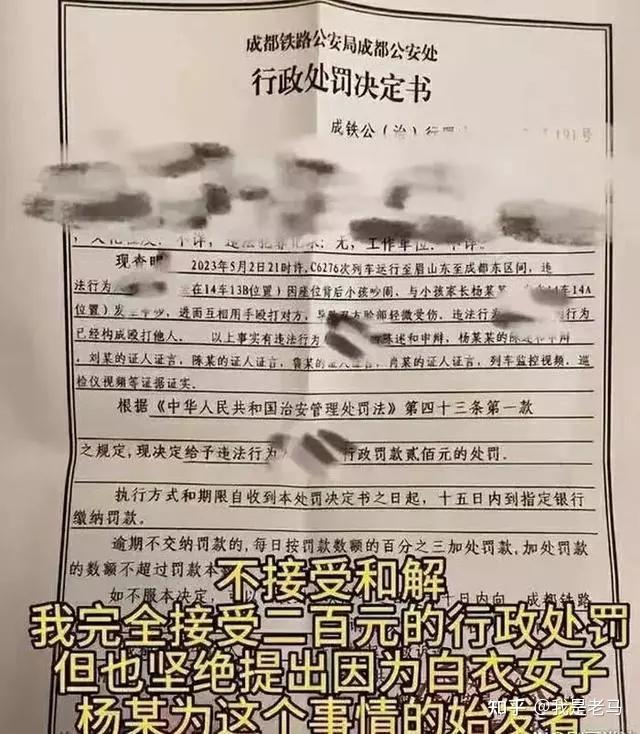 成都铁路公安局成都公安处
行政处罚决定书
成铁公(治)行罚 191号
违法犯罪记录:无,工作单位:不详。
现查明 2023年5月2日21时许,C6276次列车运行至眉山东至成都东区间,违
法行为 在14车13B位置)因座位背后小孩吵闹,与小孩家长杨某 14车14A
位置)发生争吵,进而互相用手殴打对方,导致双方脸部轻微受伤,违法行为 行为
已经构成殴打他人。 以上事实有违法行为 陈述和申辩,杨某某的陈述和申辩
,刘某的证人证言,陈某的证人证言,鲁某的证人证言,肖某的证人证言,列车监控视频,巡
检仪视频等证据证实.
根据《中华人民共和国治安管理处罚法》第四十三条第一款
之规定,现决定给予违法行为 行政罚款贰佰元的处罚.
执行方式和期限自收到本处罚决定书之日起,十五日内到指定银行
缴纳罚款。
逾期不交纳罚款的,每日按罚款数额的百分之三加处罚款,加处罚款
的数额不超过罚款本
如不服本决定, 日内向 成都铁路
不接受和解
我完全接受二百元的行政处罚
但也坚绝提出因为白衣女子
杨某为这个事情的始发者
知乎 @我是老马